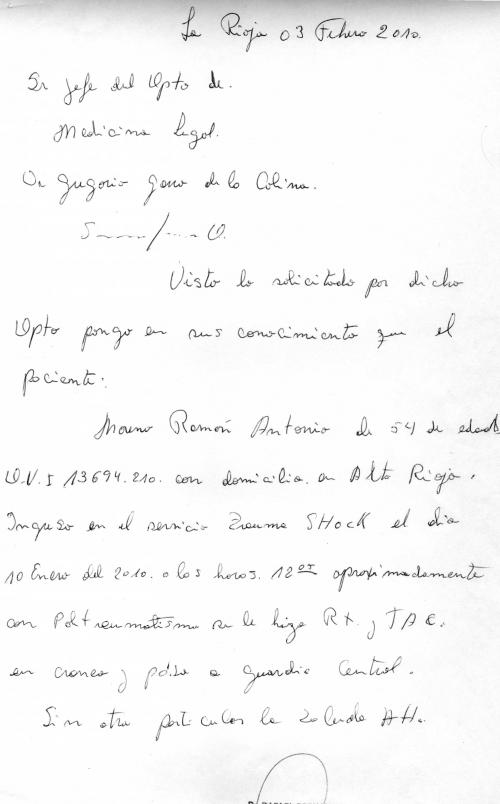 La Rioja 03 Febrero 2010.
Sr Jefe del Dpto de.
Medicina Legal.
Dr Gregorio de la Colina.
S / D.
Visto lo solicitado por dicho
Dpto pongo en sus conocimiento que el
paciente:
Moreno Ramón Antonio de 54 de edad
D.N.I 13694.210. con domicilio en Alto Rioja.
Ingreso en el servicio Trauma SHocK el dia
10 Enero del 2010. a las horas. 12 aproximadamente
con Politraumatismo se le hizo RX. y TAC.
en craneo y paso a guardia Central.
Sin otro particular le saludo Atte.